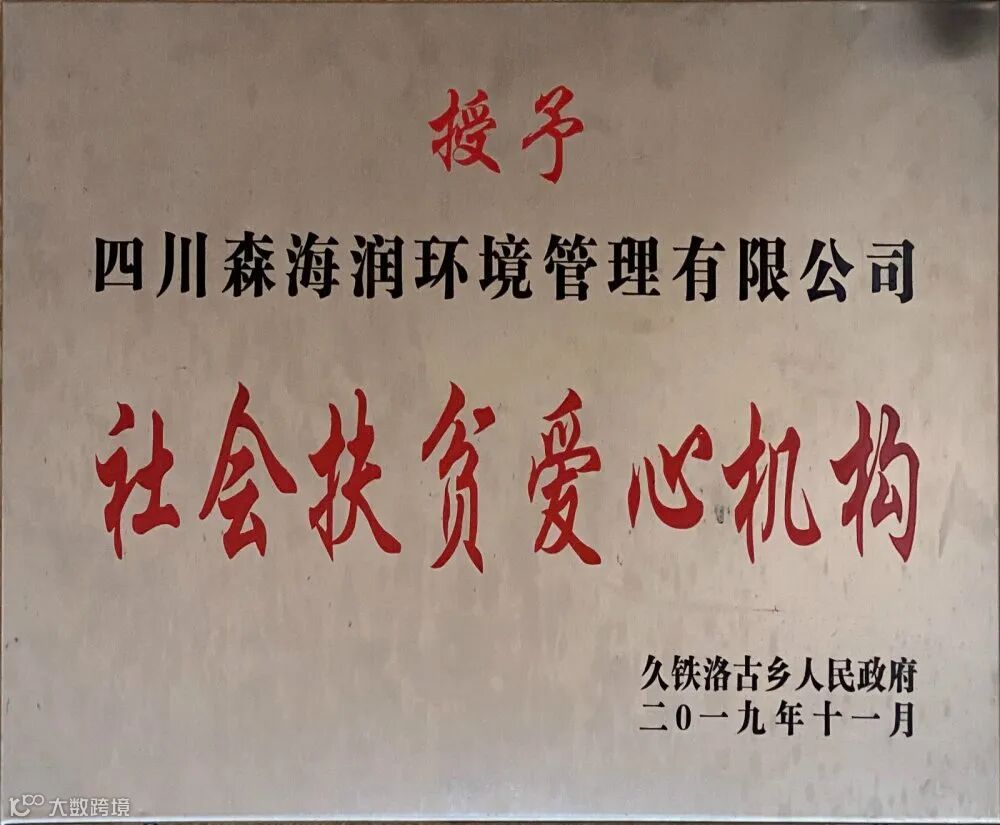 授予
四川森海润环境管理有限公司
社会扶贫爱心机构
久铁洛古乡人民政府
二0一九年十一月
大数跨境